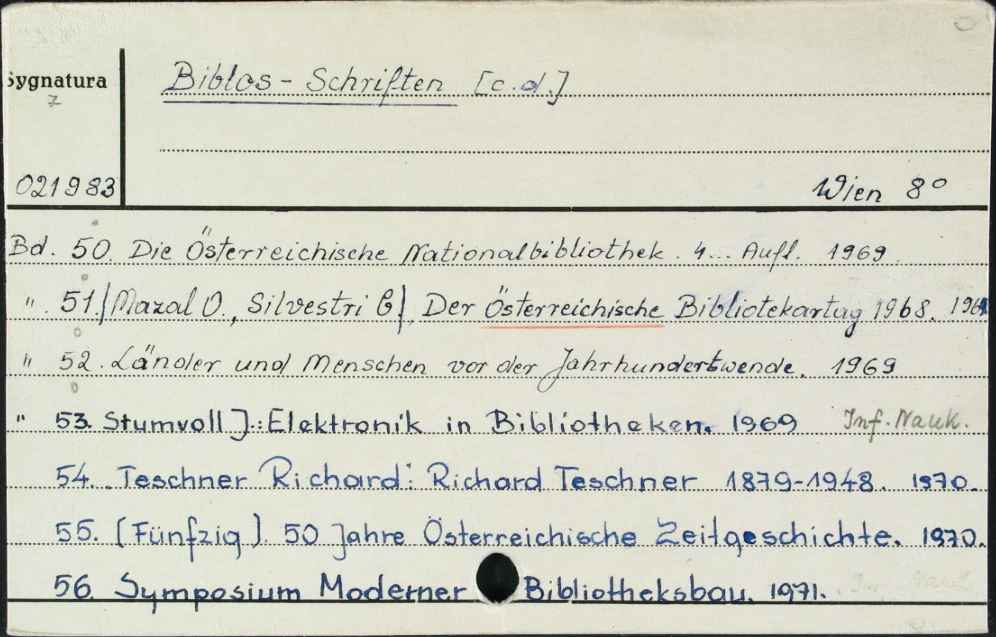 Sygnatura
Biblos - Schriften [c.d.]
021983
Wien 8°
Bd. 50. Die Österreichische Nationalbibliothek. 4... Aufl. 1969
" 51. /Mazal O., Silvestri G/ Der Österreichische Bibliotekartag 1968.
" 52. Länder und Menschen vor der Jahrhundertwende. 1969
" 53. Stumvoll J.: Elektronik in Bibliotheken. 1969 Inf. Nauk.
54. Teschner Richard: Richard Teschner 1879-1948. 1970.
55. [Fünfzig]. 50 Jahre Österreichische Zeitgeschichte. 1970.
56. Symposium Moderner Bibliotheksbau. 1971.